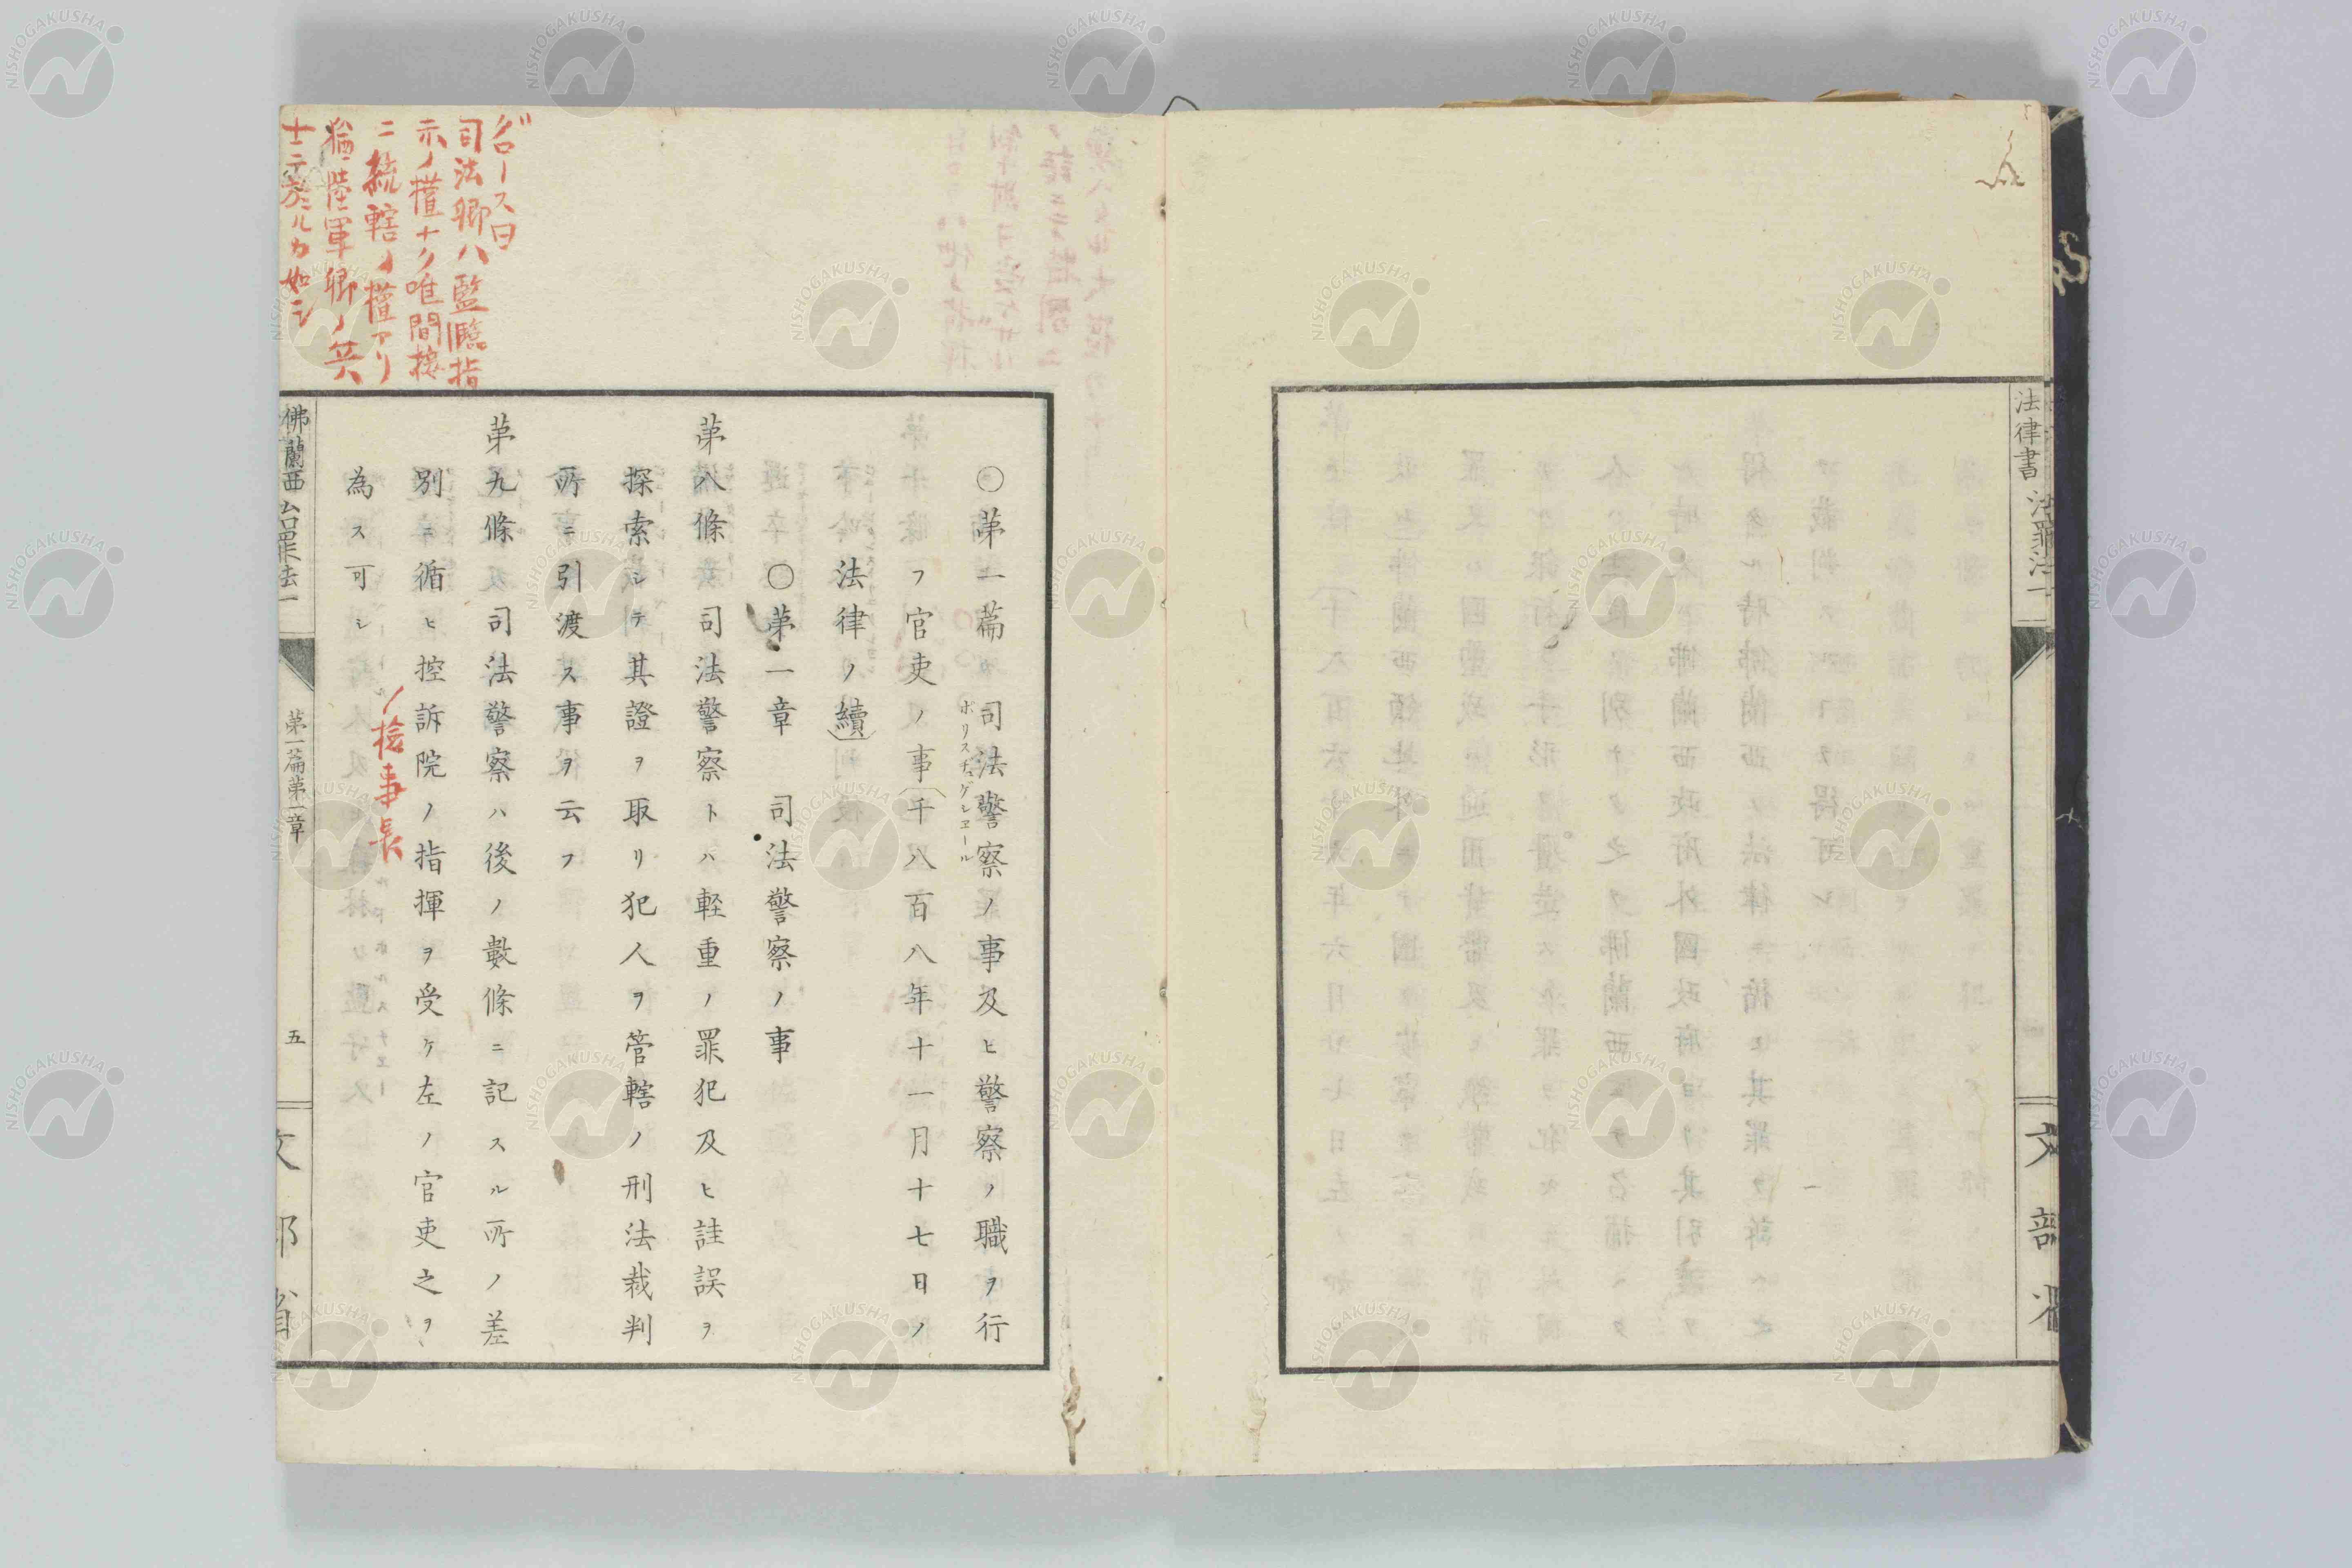 法律書 治罪法一
文部省
○苐一篇 司法警察ノ事及ヒ警察ノ職ヲ行
ポリスチュヂシエール
フ官吏ノ事(千八百八年十一月十七日ノ
法律ノ續)
○苐一章 司法警察ノ事
苐八條 司法警察トハ軽重ノ罪犯及ヒ詿誤ヲ
探索シテ其證ヲ取リ犯人ヲ管轄ノ刑法裁判
所ニ引渡ス事ヲ云フ
苐九條 司法警察ハ後ノ數條ニ記スル所ノ差
別ニ循ヒ控訴院ノ指揮ヲ受ケ左ノ官吏之ヲ
ノ檢事長
為ス可シ
司法卿ハ監臨指
示ノ權ナク唯間接
ニ統轄ノ權アリ
猶陸軍卿ノ兵
士ニ於ルカ如シ
佛蘭西 治罪法一
苐一篇苐一章
五
文部省